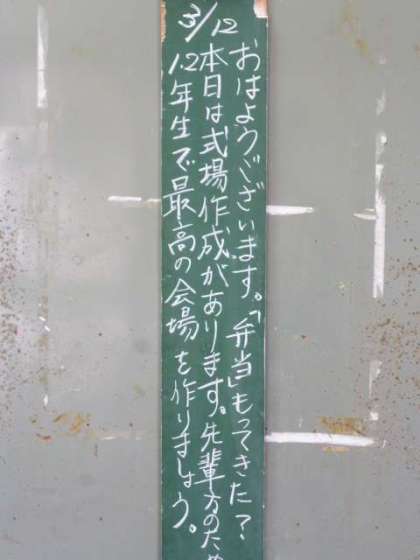 3/12
おはようございます。「弁当」もってきた？
本日は式場作成があります。先輩方のため
1.2年生で最高の会場を作りましょう。